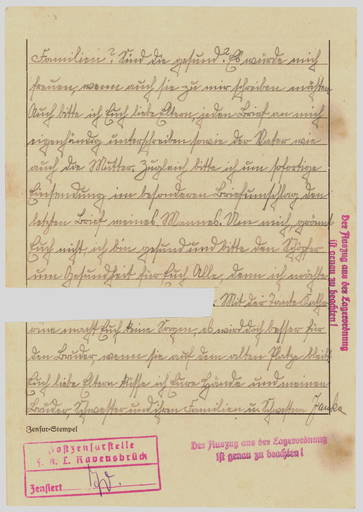 Familien? Sind die gesund? Es würde mich
freuen, wenn auch sie zu mir schreiben möchten.
Auch bitte ich Euch liebe Eltern jeden Brief an mich
eigenhändig unterschreiben sowie der Vater wie
auch die Mutter. Zugleich bitte ich um sofortige
Einsendung im besonderen Briefumschlag den
letzten Brief meines Mannes. Um mich, grämt
Euch nicht, ich bin gesund und bitte den
um Gesundheit für Euch Alle, denn ich möchte
Mit der Tante
macht Euch keine Sorgen, es wird doch besser für
den Bruder wenn sie auf dem alten Platze bleibt.
Euch liebe Eltern küsse ich Eure Hände und meinen
Bruder, Schwester und ihren Familien u. Janka
Zensur-Stempel
Postzensurstelle
F. K. L. Ravensbrück
Zensiert
Der Auszug aus der Lagerordnung
ist genau zu beachten!
Der Auszug aus der Lagerordnung
ist genau zu beachten!